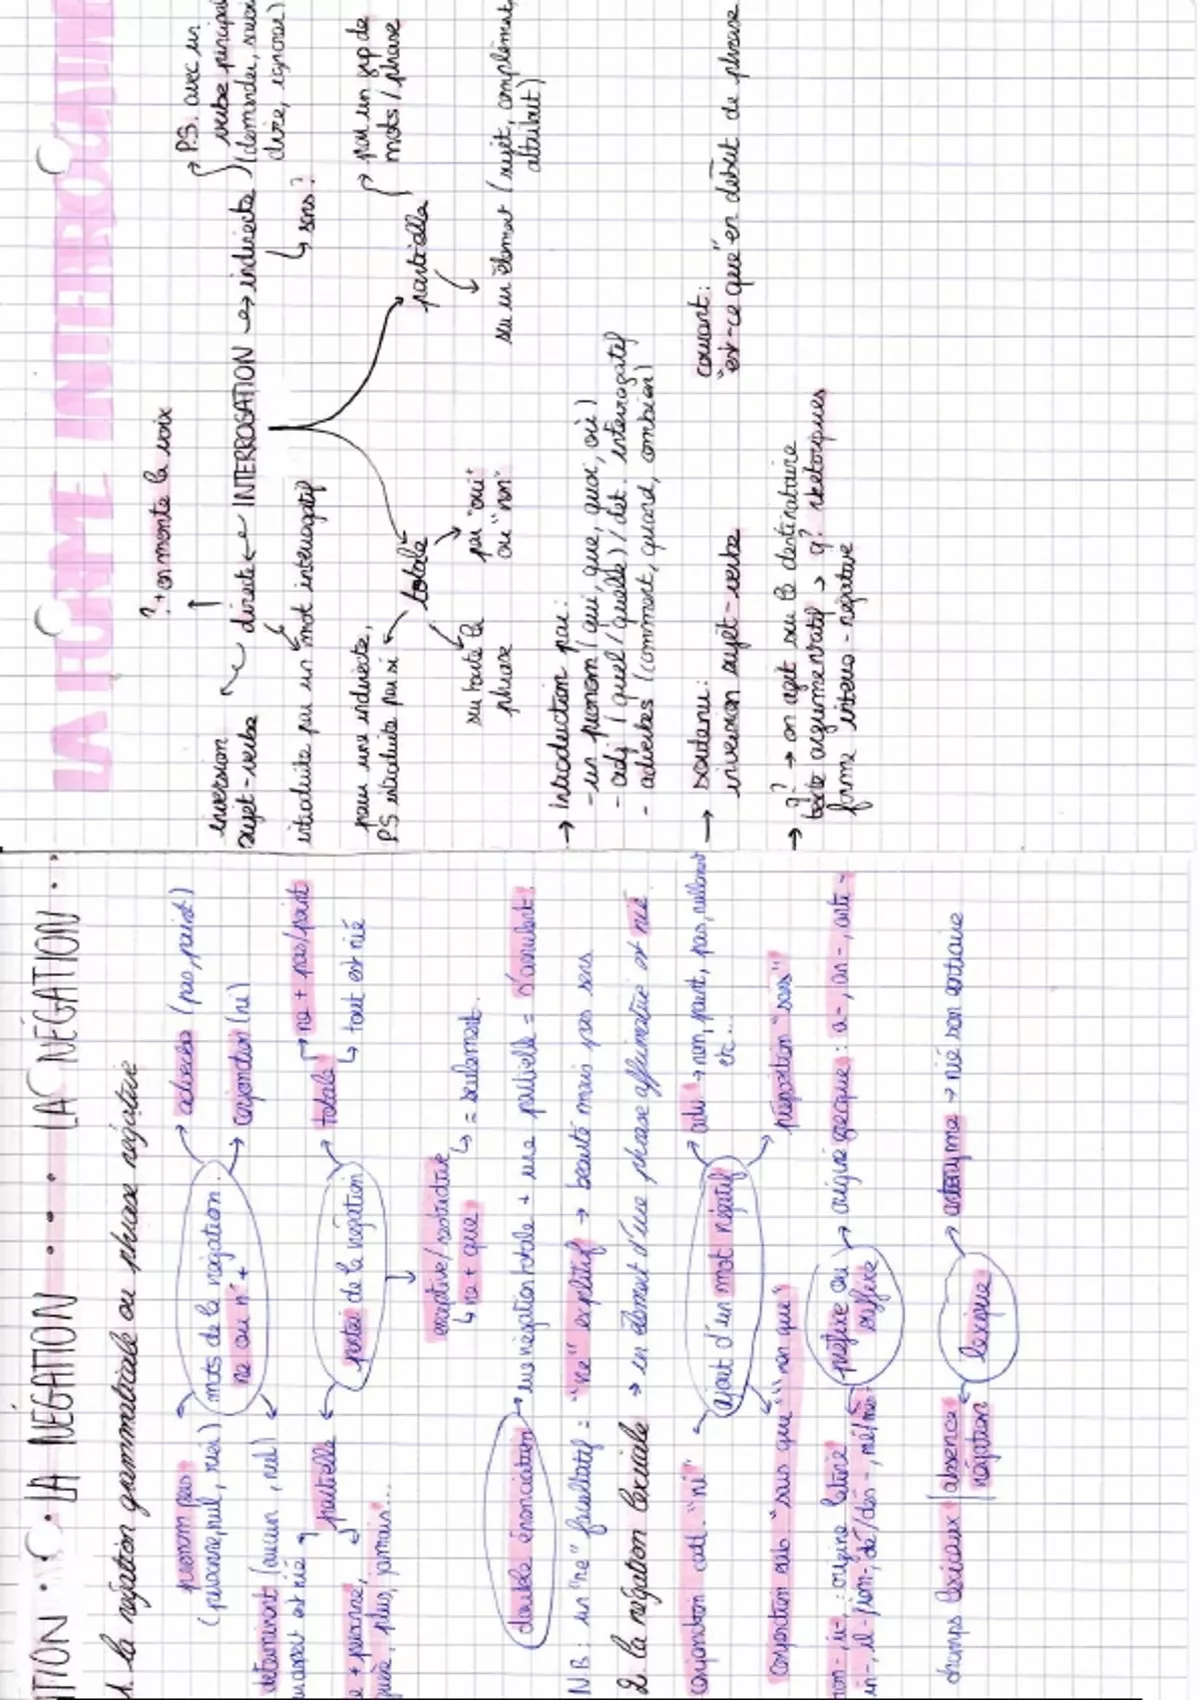 LA FORME INTERROGATIVE
? + on monte la voix
inversion
sujet-verbe
directe ← INTERROGATION → indirecte
→ P.S. avec un
verbe principal
(demander, savoir
dire, ignorer)
↳ sens?
introduite par un mot interrogatif
pour une indirecte,
PS introduite par si
totale
partielle
par un gp de
mots / phrase
sur toute la
phrase
par "oui"
ou "non"
sur un élément (sujet, complément,
attribut)
→ Introduction par:
- un pronom (qui, que, quoi, où)
- adj (quel / quelle) / dét. interrogatif
- adverbes (comment, quand, combien)
→ soutenu:
inversion sujet-verbe
courant:
"est-ce que" en début de phrase
→ q? → on agit sur le destinataire
texte argumentatif → q? rhétoriques
forme interro-négative
TION • LA NÉGATION • • • LA NÉGATION • •
1. la négation grammaticale ou phrase négative
mots de la négation
ne ou n' +
→ adverbes (pas, point)
→ conjonction (ni)
pronom
(personne, nul, rien)
déterminant (aucun, nul)
aspect est nié
portée de la négation
totale → ne + pas/point
↳ tout est nié
partielle
+ personne,
plus, jamais...
exceptive/restrictive
↳ ne + que
↳ = seulement.
double énonciation → une négation totale + une partielle = s'annulent.
N.B: un "ne" facultatif = "ne" explétif → beauté mais pas sens
2. la négation lexicale → un élément d'une phrase affirmative est nié.
ajout d'un mot négatif
adv → non, point, pas, nullement
etc...
conjonction "ni"
préposition "sans"
conjonction sub "sans que" "non que"
préfixe ou
suffixe
→ origine grecque: a-, an-, anti-
: origine latine
lexique
→ antonyme → nié son contraire
champs lexicaux
absence
négation